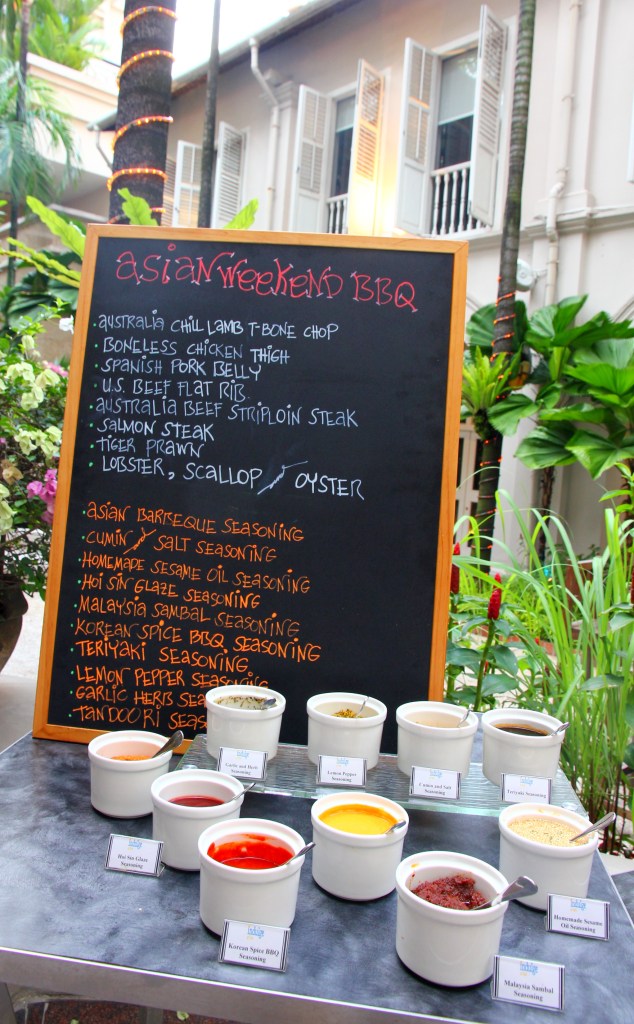 ASIAN WEEKEND BBQ
· AUSTRALIA CHILL LAMB T-BONE CHOP
· BONELESS CHICKEN THIGH
· SPANISH PORK BELLY
· U.S. BEEF FLAT RIB
· AUSTRALIA BEEF STRIPLOIN STEAK
· SALMON STEAK
· TIGER PRAWN
· LOBSTER, SCALLOP & OYSTER
· ASIAN BARBEQUE SEASONING
· CUMIN & SALT SEASONING
· HOMEMADE SESAME OIL SEASONING
· HOI SIN GLAZE SEASONING
· MALAYSIA SAMBAL SEASONING
· KOREAN SPICE BBQ SEASONING
· TERIYAKI SEASONING
· LEMON PEPPER SEASONING
· GARLIC HERB SEAS
· TANDOORI SEAS
Garlic and Herb
Seasoning
Lemon Pepper
Seasoning
Cumin and Salt
Seasoning
Teriyaki Seasoning
Hoi Sin Glaze
Seasoning
Korean Spice BBQ
Seasoning
Homemade Sesame
Oil Seasoning
Malaysia Sambal
Seasoning